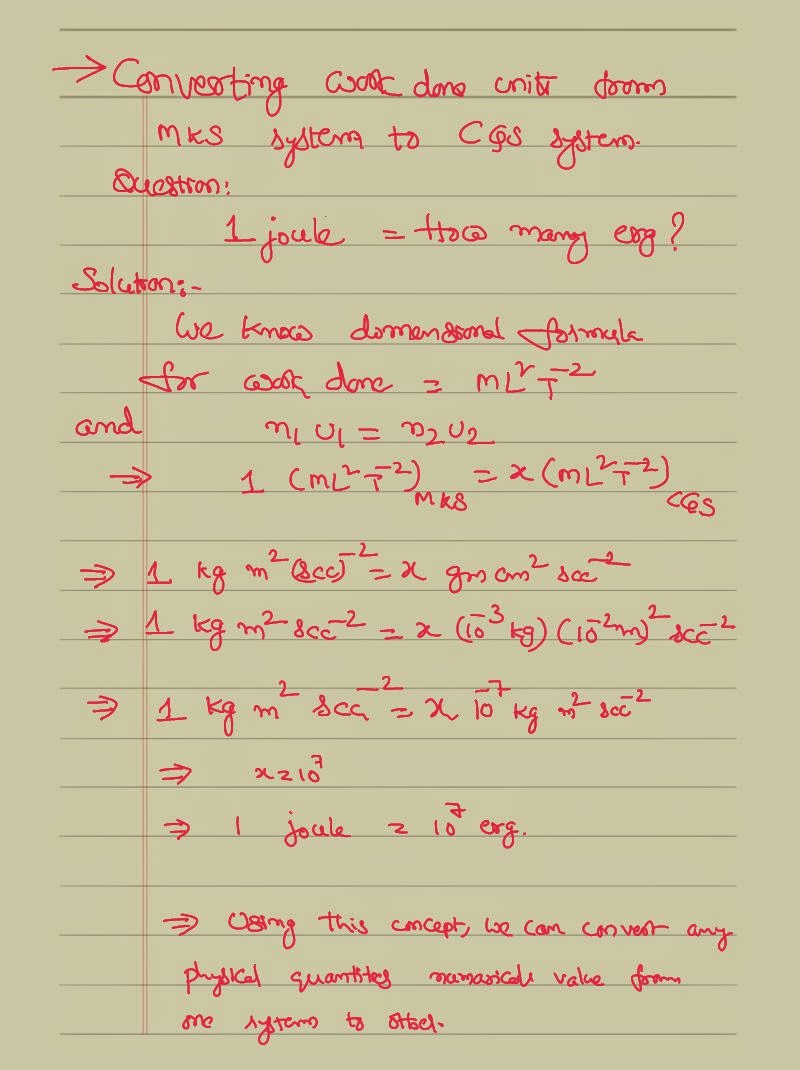 → Converting work done units from
MKS system to CGS system.
Question:
1 joule = How many erg?
Solution:-
We know dimensional formula
for work done = ML²T⁻²
and n₁ u₁ = n₂ u₂
⇒ 1 (ML²T⁻²)MKS = x (ML²T⁻²)CGS
⇒ 1 kg m² (sec)⁻² = x gm cm² sec⁻²
⇒ 1 kg m² sec⁻² = x (10⁻³ kg) (10⁻²m)² sec⁻²
⇒ 1 kg m² sec⁻² = x 10⁻⁷ kg m² sec⁻²
⇒ x = 10⁷
⇒ 1 joule = 10⁷ erg.
⇒ Using this concept, we can convert any
physical quantites numarical value from
one system to other.